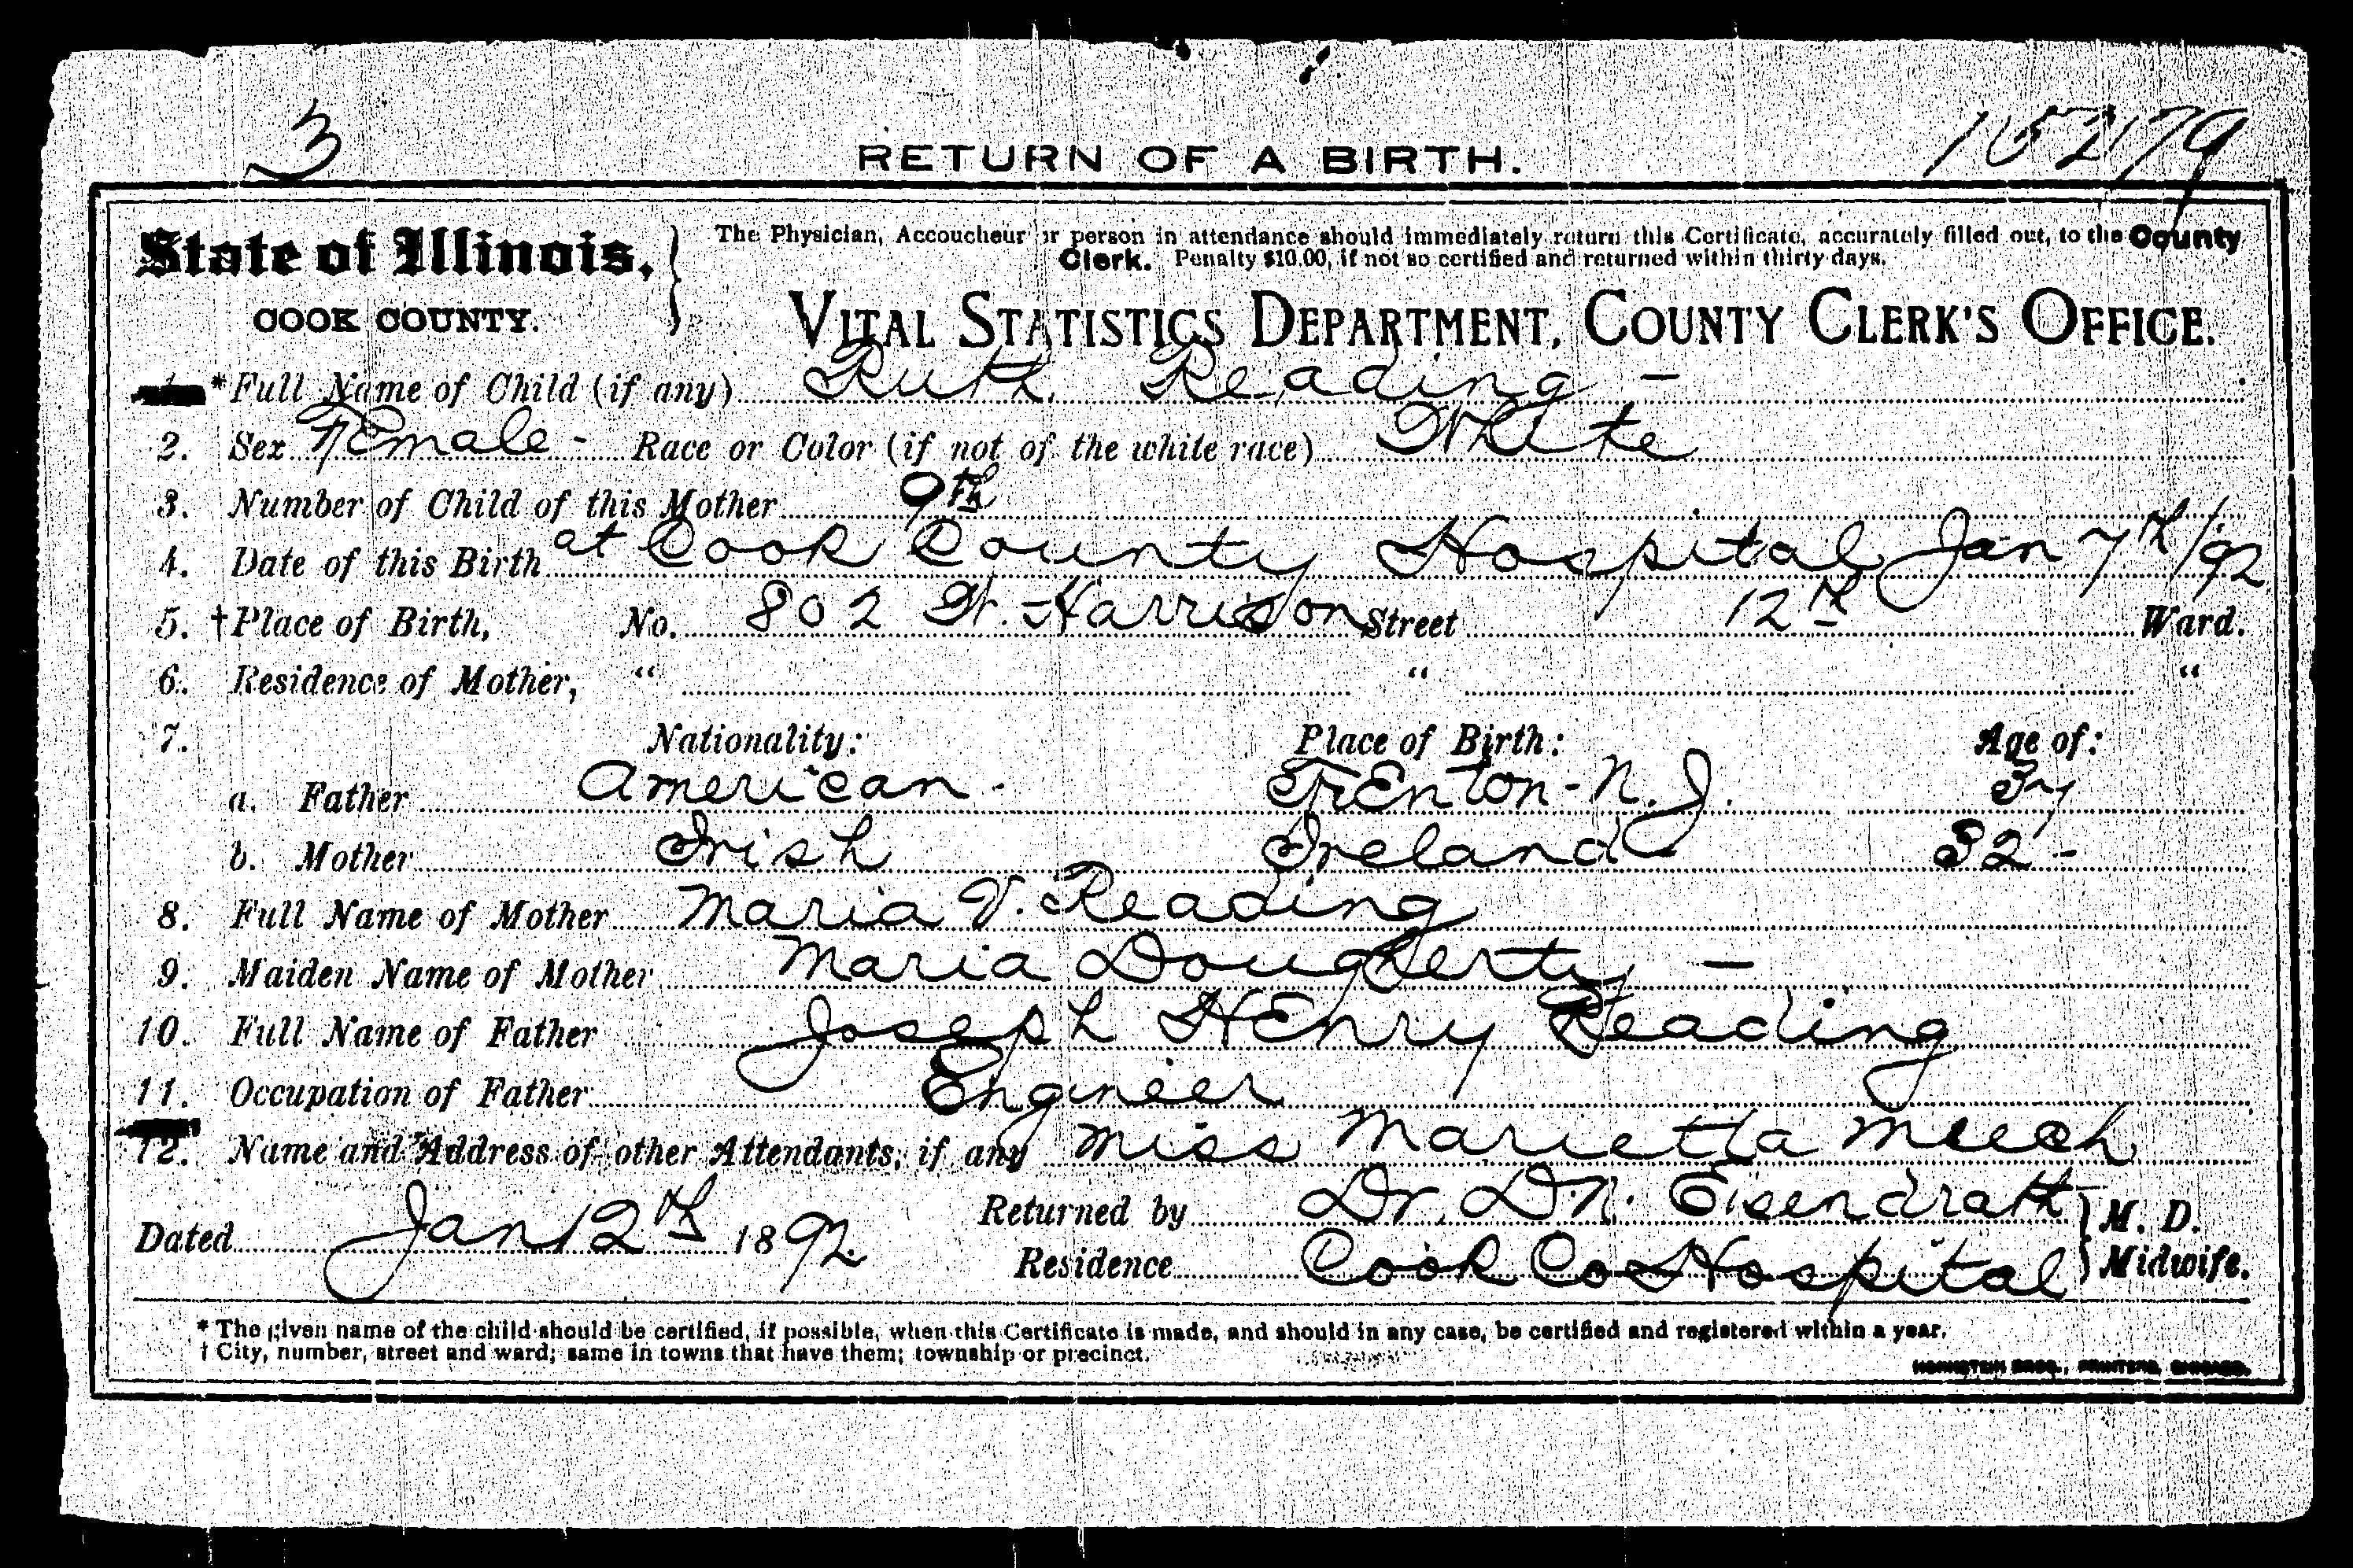 3
RETURN OF A BIRTH.
State of Illinois,
COOK COUNTY.
The Physician, Accoucheur or person in attendance should immediately return this Certificate, accurately filled out, to the County
Clerk. Penalty $10.00, if not so certified and returned within thirty days.
VITAL STATISTICS DEPARTMENT, COUNTY CLERK'S OFFICE.
*Full Name of Child (if any) Ruth Reading -
2. Sex Female - Race or Color (if not of the white race) White
3. Number of Child of this Mother 9th
4. Date of this Birth at Cook County Hospital Jan 7th/92
5. †Place of Birth, No. 802 W. Harrison Street 12th Ward.
6. Residence of Mother, " " "
7. Nationality: Place of Birth: Age of:
a. Father American - Trenton - N.J. 37
b. Mother Irish Ireland - 32 -
8. Full Name of Mother Maria V. Reading
9. Maiden Name of Mother Maria Dougherty -
10. Full Name of Father Joseph Henry Reading
11. Occupation of Father Engineer
12. Name and Address of other Attendants, if any Miss Marietta Meech
Dated Jan 12th 1892. Returned by Dr. D.N. Eisendrath } M. D.
Residence Cook Co Hospital } Midwife.
* The given name of the child should be certified, if possible, when this Certificate is made, and should in any case, be certified and registered within a year.
† City, number, street and ward; same in towns that have them; township or precinct.